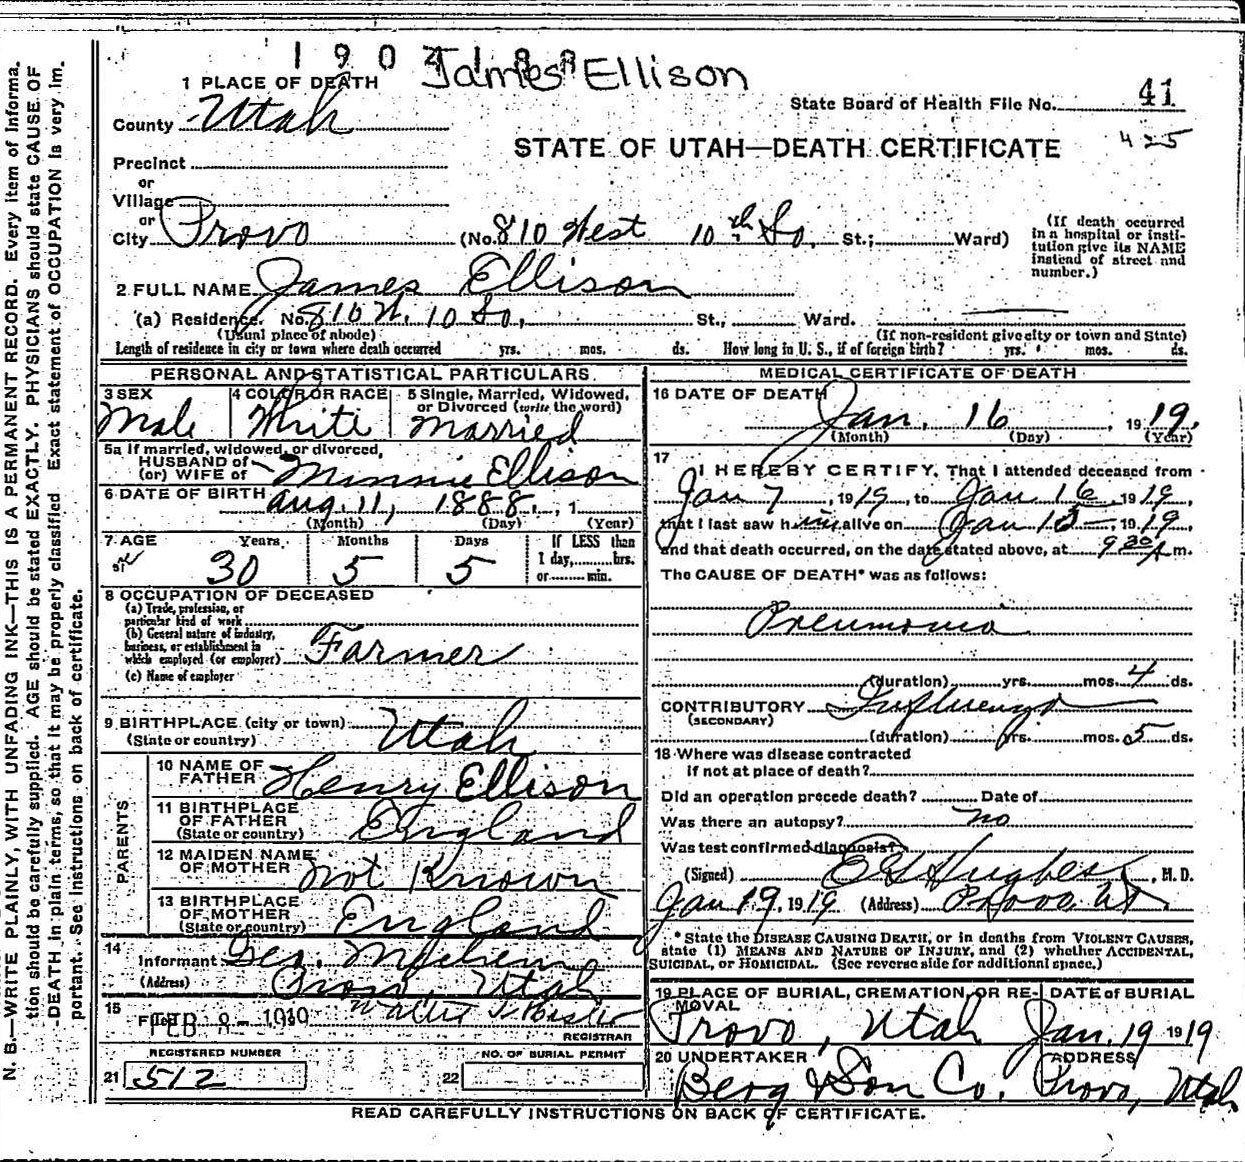 1902188
James Ellison
1 PLACE OF DEATH
State Board of Health File No. 41
County Utah
425
STATE OF UTAH—DEATH CERTIFICATE
Precinct
or
Village
or
City Provo (No. 810 West 10th So. St.; Ward)
(If death occurred in a hospital or institution give its NAME instead of street and number.)
2 FULL NAME James Ellison
(a) Residence. No. 810 W. 10 So. St., Ward.
(Usual place of abode) (If non-resident give city or town and State)
Length of residence in city or town where death occurred yrs. mos. ds. How long in U. S., if of foreign birth? yrs. mos. ds.
PERSONAL AND STATISTICAL PARTICULARS
3 SEX Male
4 COLOR OR RACE White
5 Single, Married, Widowed, or Divorced (write the word) Married
5a If married, widowed, or divorced,
HUSBAND of
(or) WIFE of Minnie Ellison
6 DATE OF BIRTH Aug. 11, 1888, 1
(Month) (Day) (Year)
7 AGE Years Months Days If LESS than
1 day, hrs.
or min.
30 5 5
8 OCCUPATION OF DECEASED
(a) Trade, profession, or
particular kind of work
(b) General nature of industry,
business, or establishment in
which employed (or employer) Farmer
(c) Name of employer
9 BIRTHPLACE (city or town)
(State or country) Utah
PARENTS
10 NAME OF
FATHER Henry Ellison
11 BIRTHPLACE
OF FATHER
(State or country) England
12 MAIDEN NAME
OF MOTHER Not Known
13 BIRTHPLACE
OF MOTHER
(State or country) England
14
Informant Geo.
(Address) Provo, Utah
15
Filed FEB 8 - 1919 Walter T.
REGISTRAR
REGISTERED NUMBER
21 512
NO. OF BURIAL PERMIT
22
MEDICAL CERTIFICATE OF DEATH
16 DATE OF DEATH
Jan. 16, 1919.
(Month) (Day) (Year)
17
I HEREBY CERTIFY, That I attended deceased from
Jan 7, 1919, to Jan 16, 1919,
that I last saw him alive on Jan 15, 1919,
and that death occurred, on the date stated above, at 9 30 A m.
The CAUSE OF DEATH* was as follows:
Pneumonia
(duration) yrs. mos. 4 ds.
CONTRIBUTORY Influenza
(SECONDARY)
(duration) yrs. mos. 5 ds.
18 Where was disease contracted
if not at place of death?
Did an operation precede death? Date of
Was there an autopsy? no
Was test confirmed diagnosis?
(Signed) Hughes, M. D.
Jan 19, 1919 (Address) Provo Ut
* State the DISEASE CAUSING DEATH, or in deaths from VIOLENT CAUSES,
state (1) MEANS AND NATURE OF INJURY, and (2) whether ACCIDENTAL,
SUICIDAL, or HOMICIDAL. (See reverse side for additional space.)
19 PLACE OF BURIAL, CREMATION, OR RE-
MOVAL
Provo, Utah
DATE of BURIAL
Jan. 19 1919
20 UNDERTAKER
Berg & Son Co.
ADDRESS
Provo, Utah
READ CAREFULLY INSTRUCTIONS ON BACK OF CERTIFICATE.
N. B.—WRITE PLAINLY, WITH UNFADING INK—THIS IS A PERMANENT RECORD. Every item of informa-
tion should be carefully supplied. AGE should be stated EXACTLY. PHYSICIANS should state CAUSE OF
DEATH in plain terms, so that it may be properly classified. Exact statement of OCCUPATION is very im-
portant. See instructions on back of certificate.